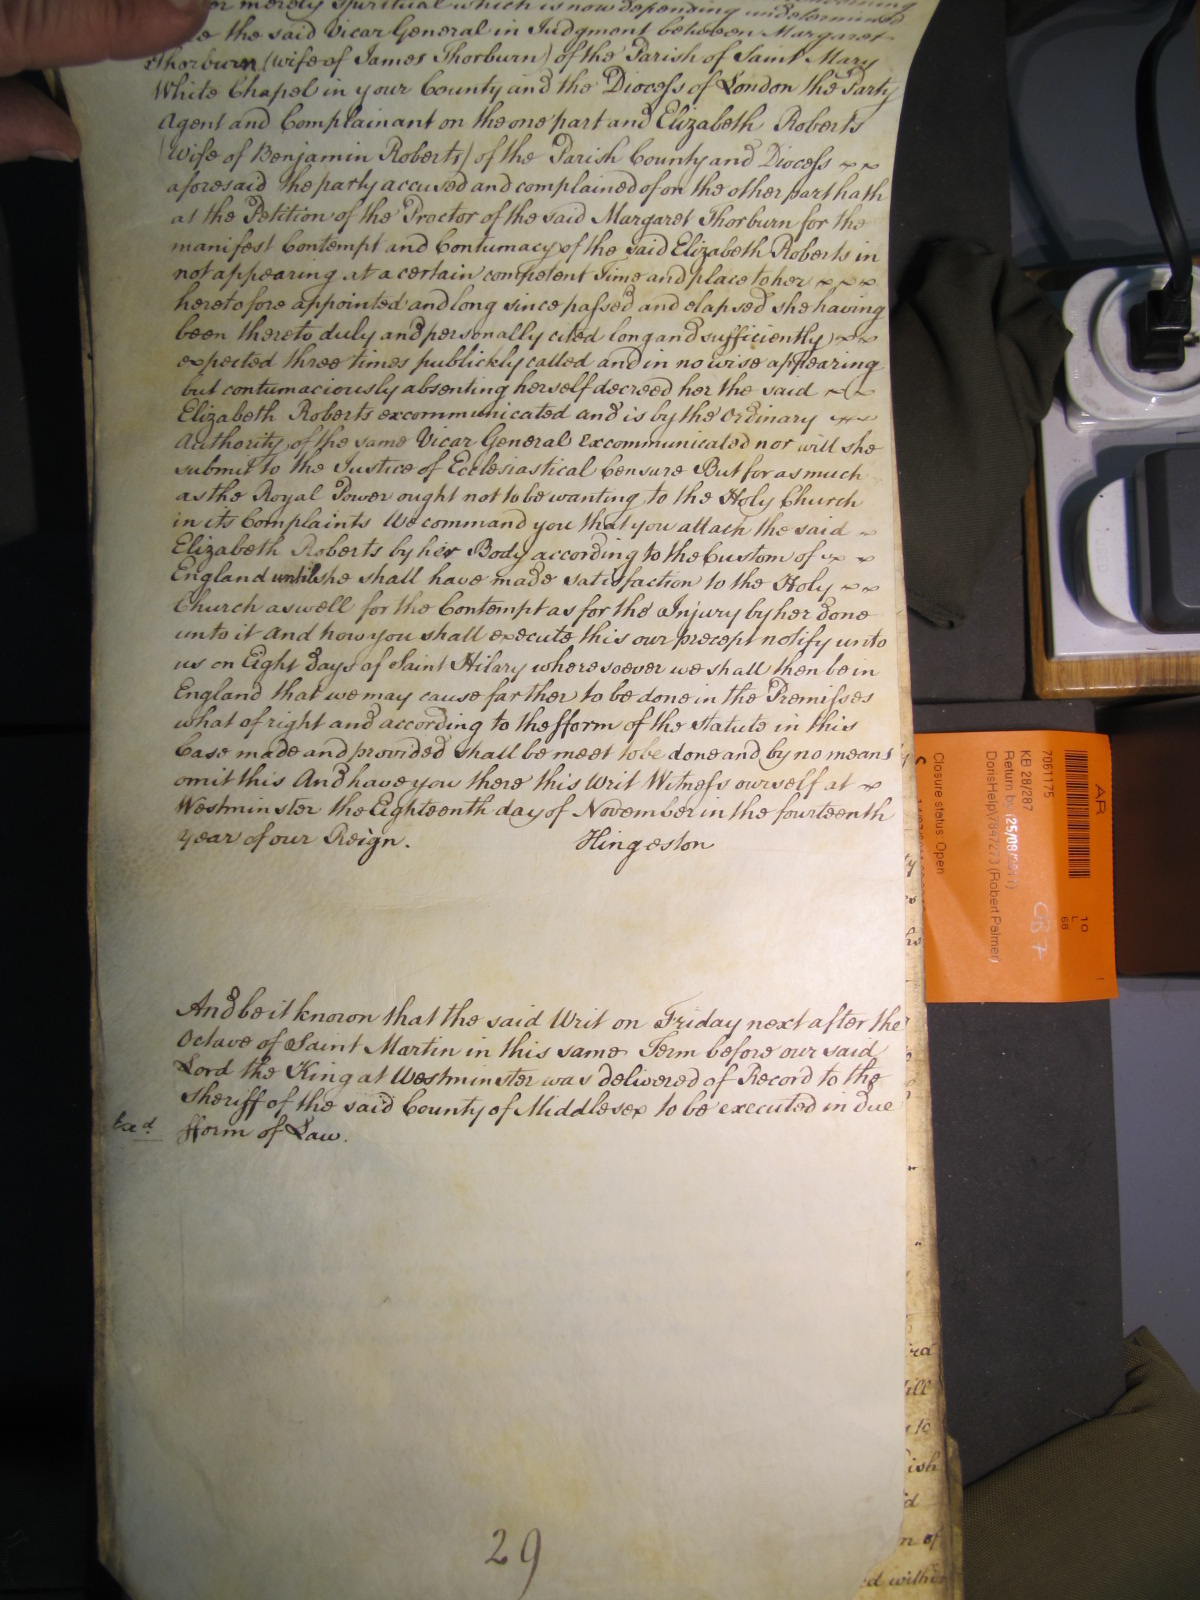 er merely Spiritual which is now depending undetermined
the said Vicar General in Judgment between Margaret
Thorburn (wife of James Thorburn) of the Parish of Saint Mary
White Chapel in your County and the Diocess of London the Party
Agent and Complainant on the one part and Elizabeth Roberts
(Wife of Benjamin Roberts) of the Parish County and Diocess
aforesaid the party accused and complained of on the other part hath
at the Petition of the Proctor of the said Margaret Thorburn for the
manifest Contempt and Contumacy of the said Elizabeth Roberts in
not appearing at a certain competent Time and place to her
heretofore appointed and long since passed and elapsed she having
been thereto duly and personally cited long and sufficiently
expected three times publickly called and in no wise appearing
but contumaciously absenting herself decreed her the said
Elizabeth Roberts excommunicated and is by the Ordinary
Authority of the same Vicar General excommunicated nor will she
submit to the Justice of Ecclesiastical Censure But for as much
as the Royal Power ought not to be wanting to the Holy Church
in its Complaints We command you that you attach the said
Elizabeth Roberts by her Body according to the Custom of
England until she shall have made satisfaction to the Holy
Church as well for the Contempt as for the Injury by her done
unto it And how you shall execute this our precept notify unto
us on Eight days of Saint Hilary wheresoever we shall then be in
England that we may cause farther to be done in the Premisses
what of right and according to the fform of the Statute in this
Case made and provided shall be meet to be done and by no means
omit this And have you there this Writ Witness ourself at
Westminster the Eighteenth day of November in the fourteenth
year of our Reign. Hingeston
And be it known that the said Writ on Friday next after the
Octave of Saint Martin in this same Term before our said
Lord the King at Westminster was delivered of Record to the
Sheriff of the said County of Middlesex to be executed in due
fform of Law.
29
AR
7061175
KB 28/287
Return by (25/08/2011)
DorisHelp\7847273 (Robert Palmer)
Closure status: Open
10
L
68
ill
to
ish
d
n of
d within